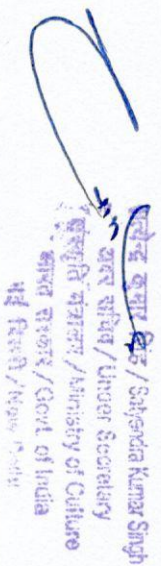 सत्येन्द्र कुमार सिंह / Satyendra Kumar Singh
अवर सचिव / Under Secretary
संस्कृति मंत्रालय / Ministry of Culture
भारत सरकार / Govt. of India
नई दिल्ली / New Delhi